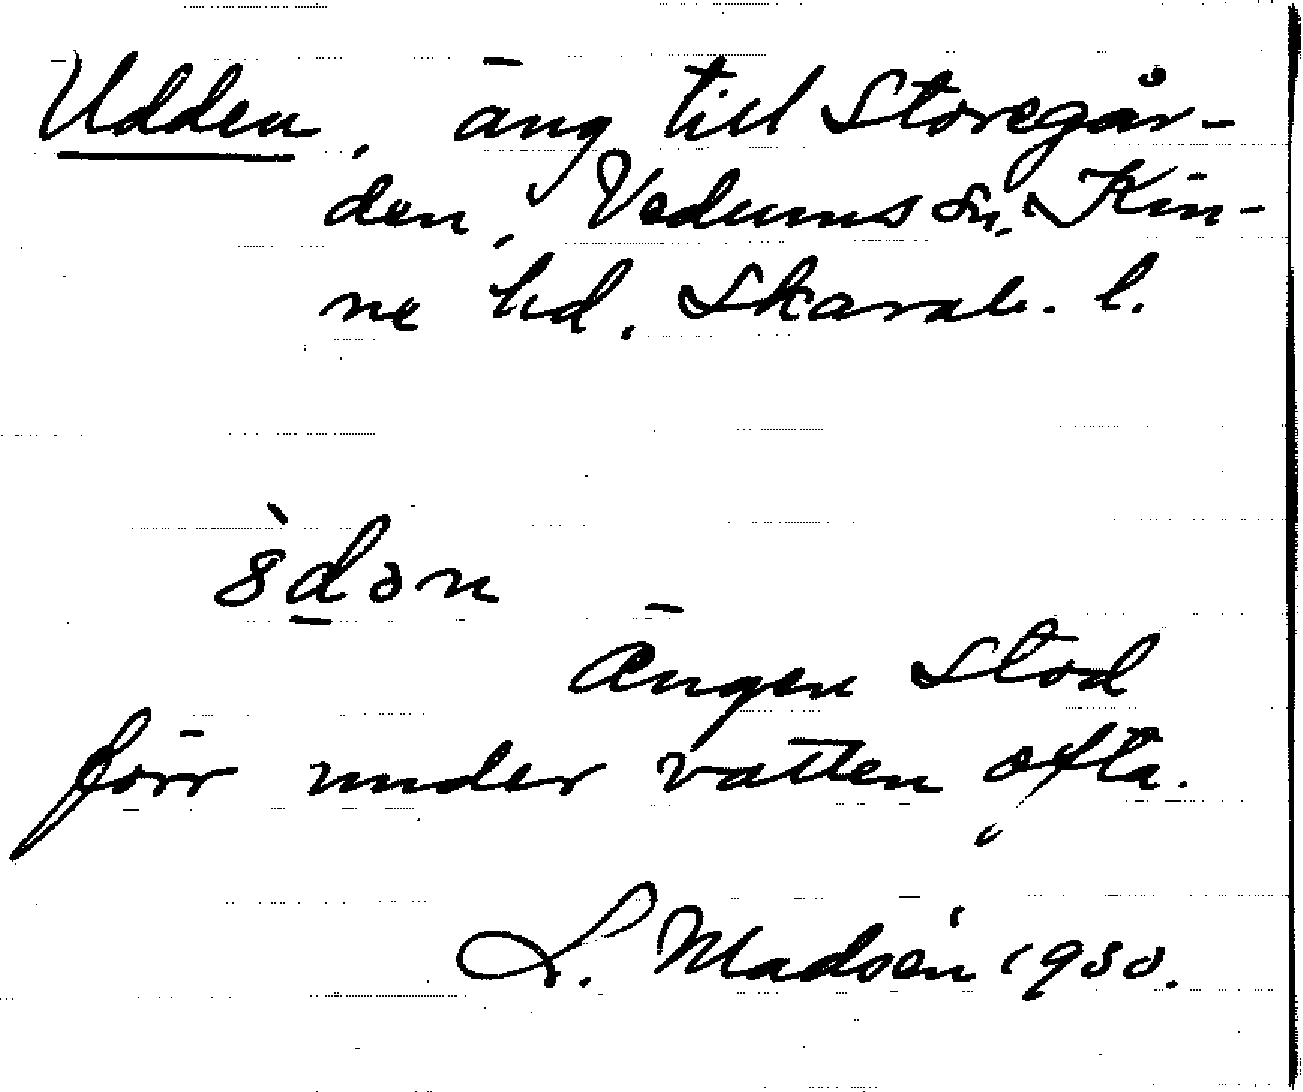 Udden, äng till Storegår-
den, Vedums sn, Kin-
ne hd. Skarab. l.
ängen stod
förr under vatten ofta.
L. Madsén 1930.